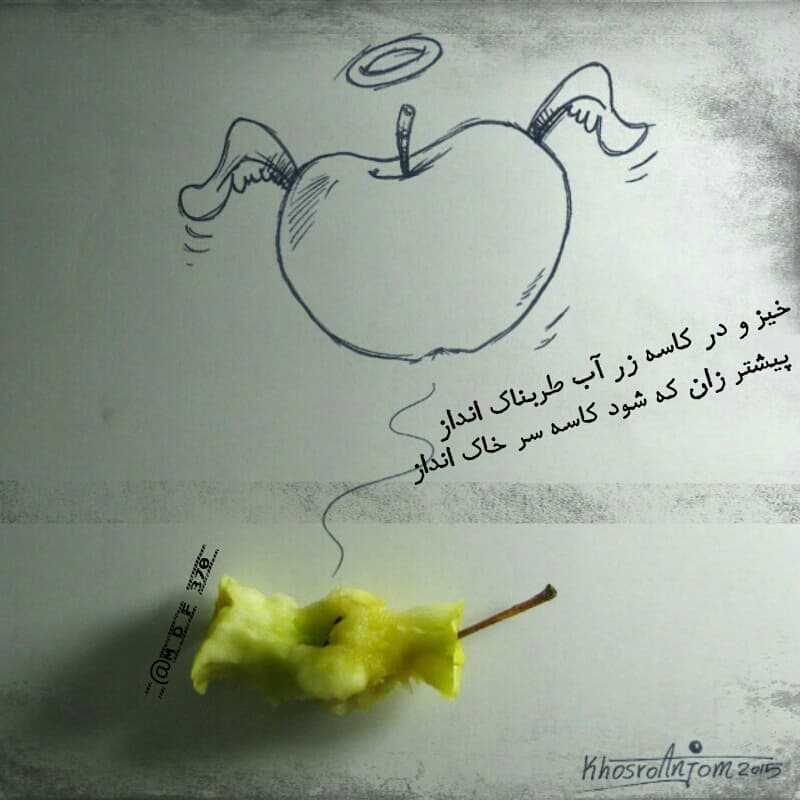 خیز و در کاسه زر آب طربناک انداز
پیشتر زان که شود کاسه سر خاک انداز
@M D F 370
KhosroAnjom 2015